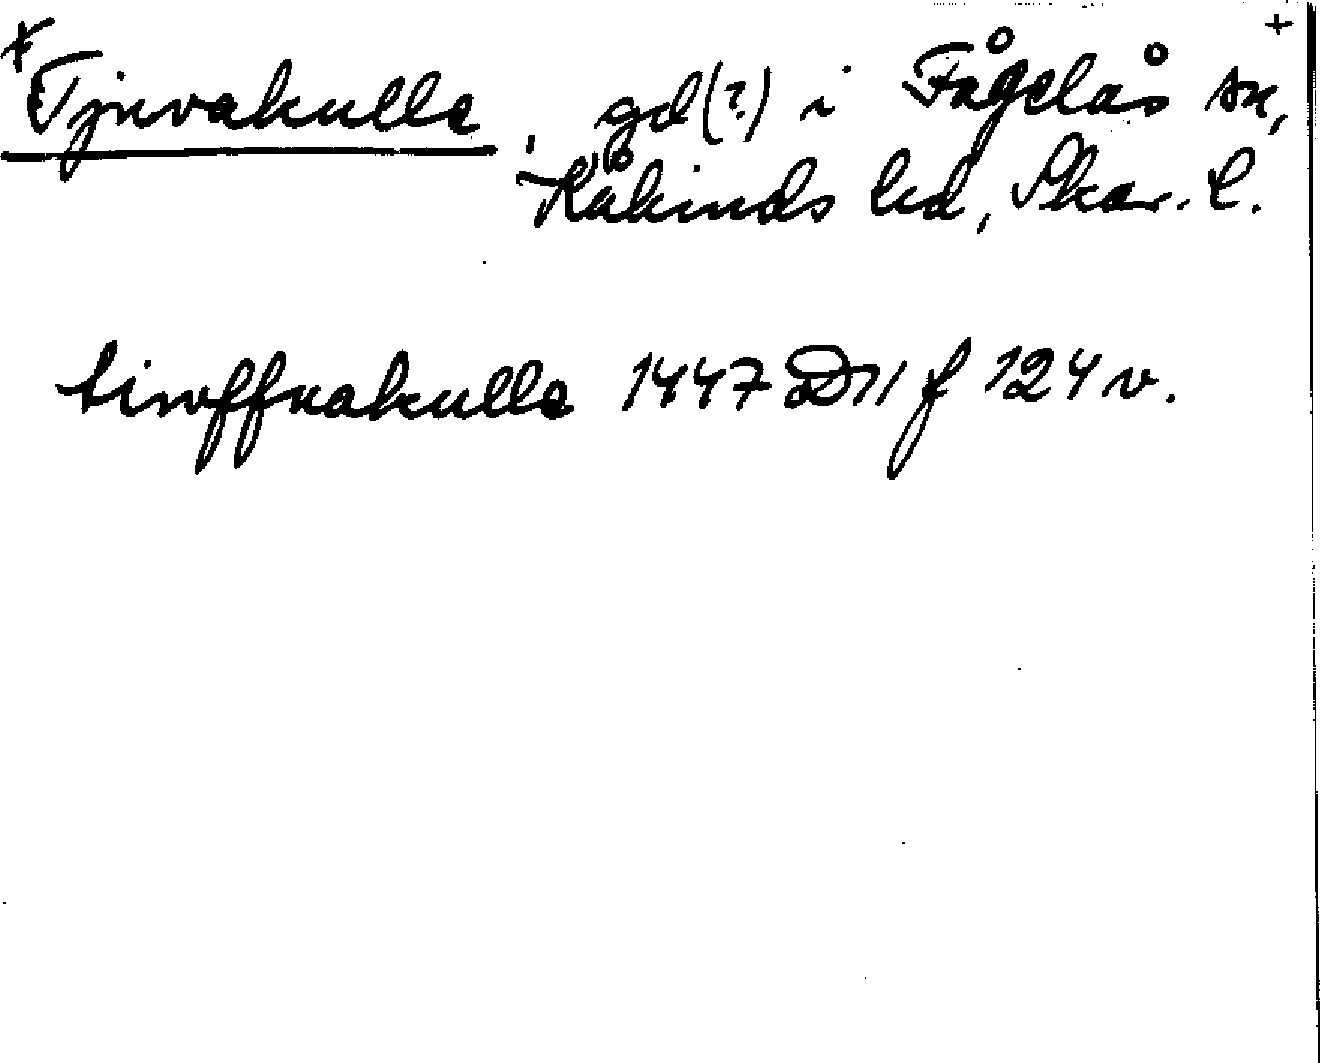 + +
Tjuvakulle, gd(?) i Fågelås sn,
Kåkinds hd, Skar. l.
tiwffuakulle 1447 D11 f 124 v.